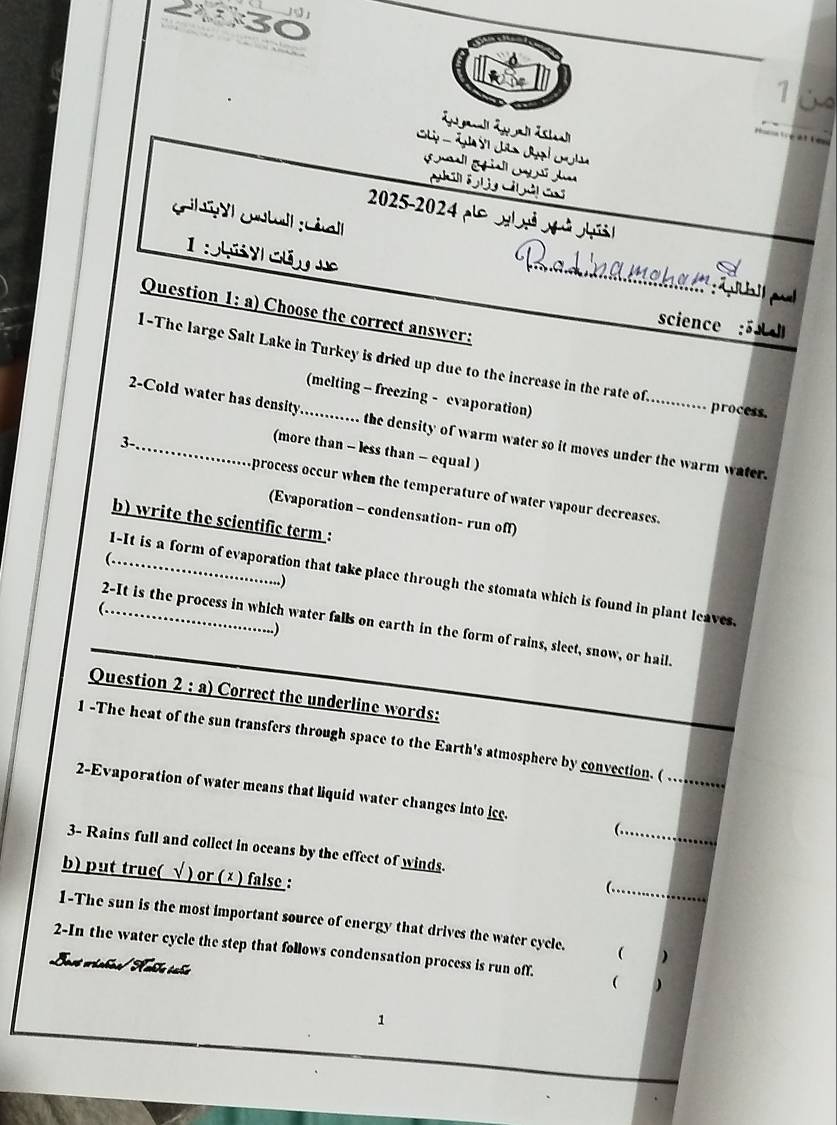 2030
المملكة العربية السعودية
مدارس أجيال حائل الأهلية – بنات
مسار تدريس المنهج المصري
تحت إشراف وزارة التعليم
اختبار شهر فبراير عام 2024-2025
الصف: السادس الإبتدائي
اسم الطالبة:
عدد ورقات الإختبار: 1
المادة: science
Question 1: a) Choose the correct answer:
1-The large Salt Lake in Turkey is dried up due to the increase in the rate of............ process.
(melting – freezing - evaporation)
2-Cold water has density............ the density of warm water so it moves under the warm water.
(more than – less than – equal )
3-........................process occur when the temperature of water vapour decreases.
(Evaporation – condensation- run off)
b) write the scientific term :
1-It is a form of evaporation that take place through the stomata which is found in plant leaves.
(..............................)
2-It is the process in which water falls on earth in the form of rains, sleet, snow, or hail.
(..............................)
Question 2 : a) Correct the underline words:
1 -The heat of the sun transfers through space to the Earth's atmosphere by convection. ( ............
2-Evaporation of water means that liquid water changes into ice.
(..................
3- Rains full and collect in oceans by the effect of winds.
(..................
b) put true( √ ) or ( x ) false :
1-The sun is the most important source of energy that drives the water cycle. ( )
2-In the water cycle the step that follows condensation process is run off. ( )
Best wishes/
1